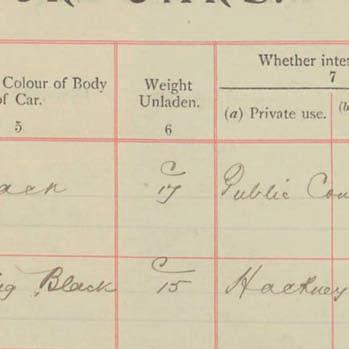 Colour of Body
of Car.
5
Weight
Unladen.
6
Whether inte
7
(a) Private use.
(b
ack
C
17
Public Con
Black
C
15
Hackney